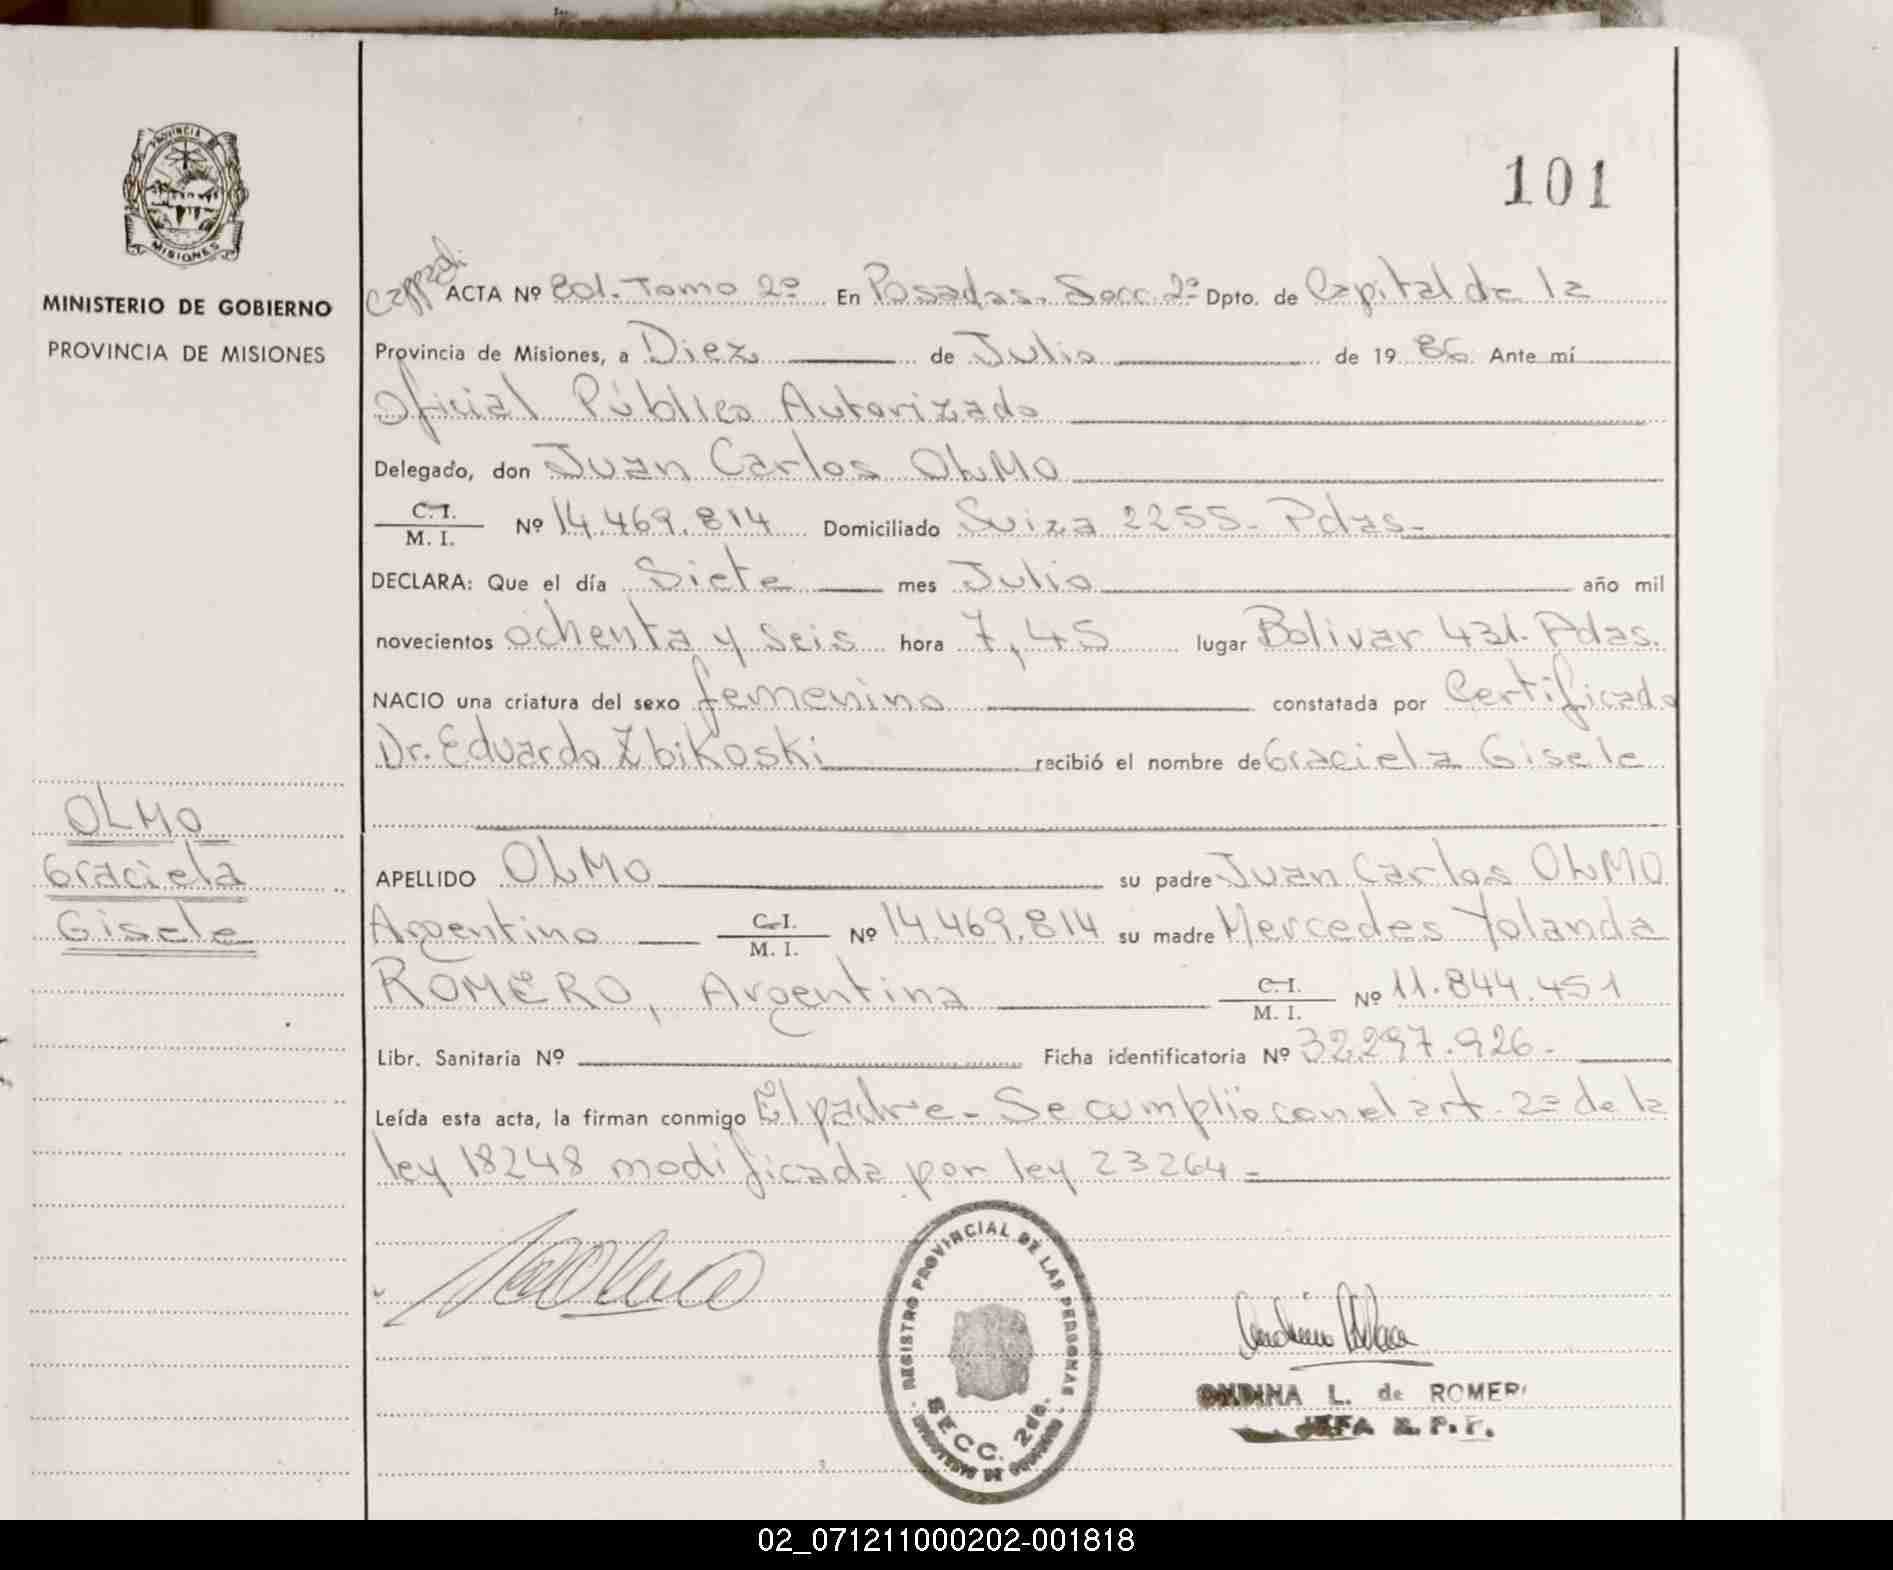 101
PROVINCIA DE MISIONES
MINISTERIO DE GOBIERNO
PROVINCIA DE MISIONES
ACTA Nº 801. Tomo 2º En Posadas. Secc. 2ª Dpto. de Capital de la
Provincia de Misiones, a Diez de Julio de 19 86 Ante mí
Oficial Público Autorizado
Delegado, don Juan Carlos OLMO
C.I.
M. I. Nº 14.469.814 Domiciliado Suiza 2255- Pdas-
DECLARA: Que el día Siete mes Julio año mil
novecientos ochenta y seis hora 7,45 lugar Bolivar 431. Pdas.
NACIO una criatura del sexo femenino constatada por Certificado
Dr. Eduardo Zbikoski recibió el nombre de Graciela Gisele
OLMO
Graciela
Gisele
APELLIDO OLMO su padre Juan Carlos OLMO
Argentino C.I.
M. I. Nº 14.469.814 su madre Mercedes Yolanda
ROMERO, Argentina C.I.
M. I. Nº 11.844.451
Libr. Sanitaria Nº Ficha identificatoria Nº 32.297.926-
Leída esta acta, la firman conmigo El padre- Se cumplió con el art. 2º de la
ley 18248 modificada por ley 23264=
REGISTRO PROVINCIAL DE LAS PERSONAS
SECC. 2da.
MINISTERIO DE GOBIERNO
ONDINA L. de ROMERO
JEFA R.P.P.
02_071211000202-001818